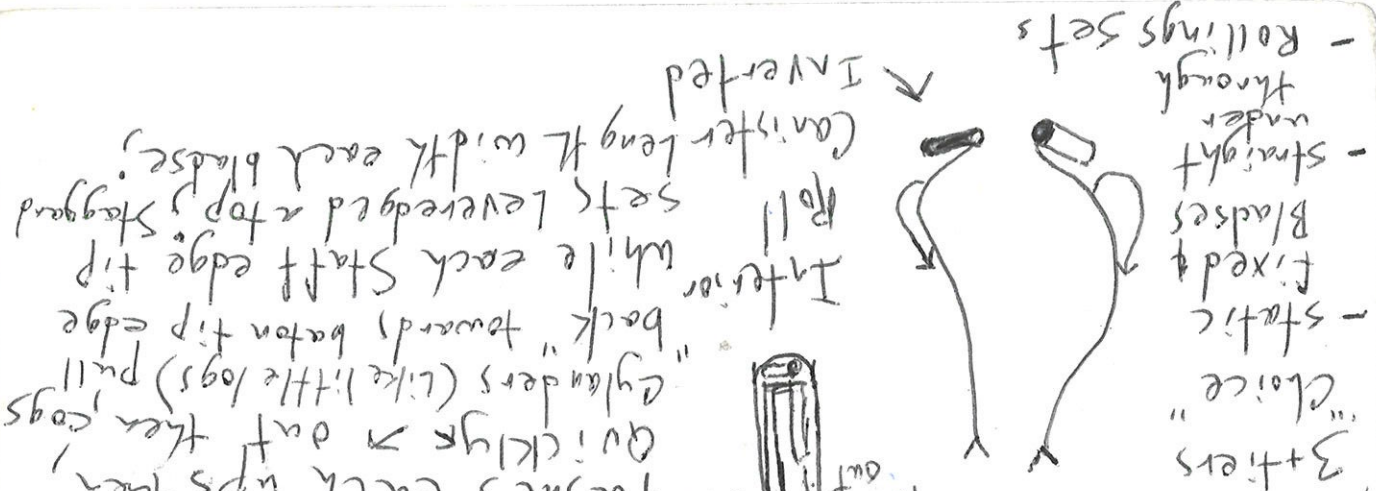 3 tiers
"Choice"
- static
fixed &
Bladses
- straight
under
through
- Rollings sets
out
Interior
Roll
Inverted
each ups then,
Quickly out then, cogs
"cylanders (Like little logs) pull
back" towards baton tip edge
while each staff edge tip
sets Leveredged atop, staggard
Canister Length width each bladse.